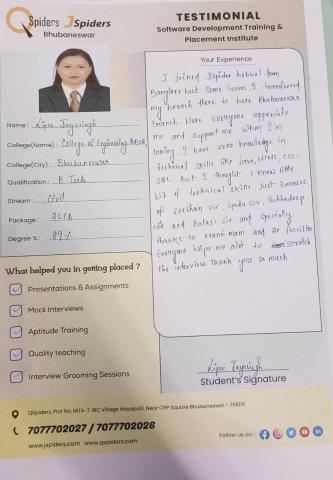 QSpiders JSpiders
Bhubaneswar
TESTIMONIAL
Software Development Training &
Placement Institute
Name: Lipsa Jayasingh
College(Name): College of Engineering BBSR
College(City): Bhubaneswar
Qualification: B.Tech
Stream: Civil
Package: 2LPA
Degree %: 89%
Your Experience
I joined Jspider hebbal from
Banglore but some issues I transferred
my branch there to here Bhubaneswar
branch. Here everyone appreciate
me and support me. When I'm
coming I have zero knowledge in
technical skills like Java, HTML, CSS,
SQL. But I thought I know little
bit of technical skills just because
of Zeeshan sir, Gudu Sir, Sukhadeep
sir and Balaji sir and specialy
thanks to mam and HR faculties
Everyone helps me alot to Scratch
the interview. Thank you so much.
What helped you in getting placed ?
Presentations & Assignments
Mock Interviews
Aptitude Training
Quality teaching
Interview Grooming Sessions
Lipsa Jayasingh
Student's Signature
QSpiders, Plot No. N1/A-7, IRC Village Nayapalli, Near CRP Square Bhubaneswar - 751015
7077702027 / 7077702026
www.jspiders.com www.qspiders.com
Follow us on: